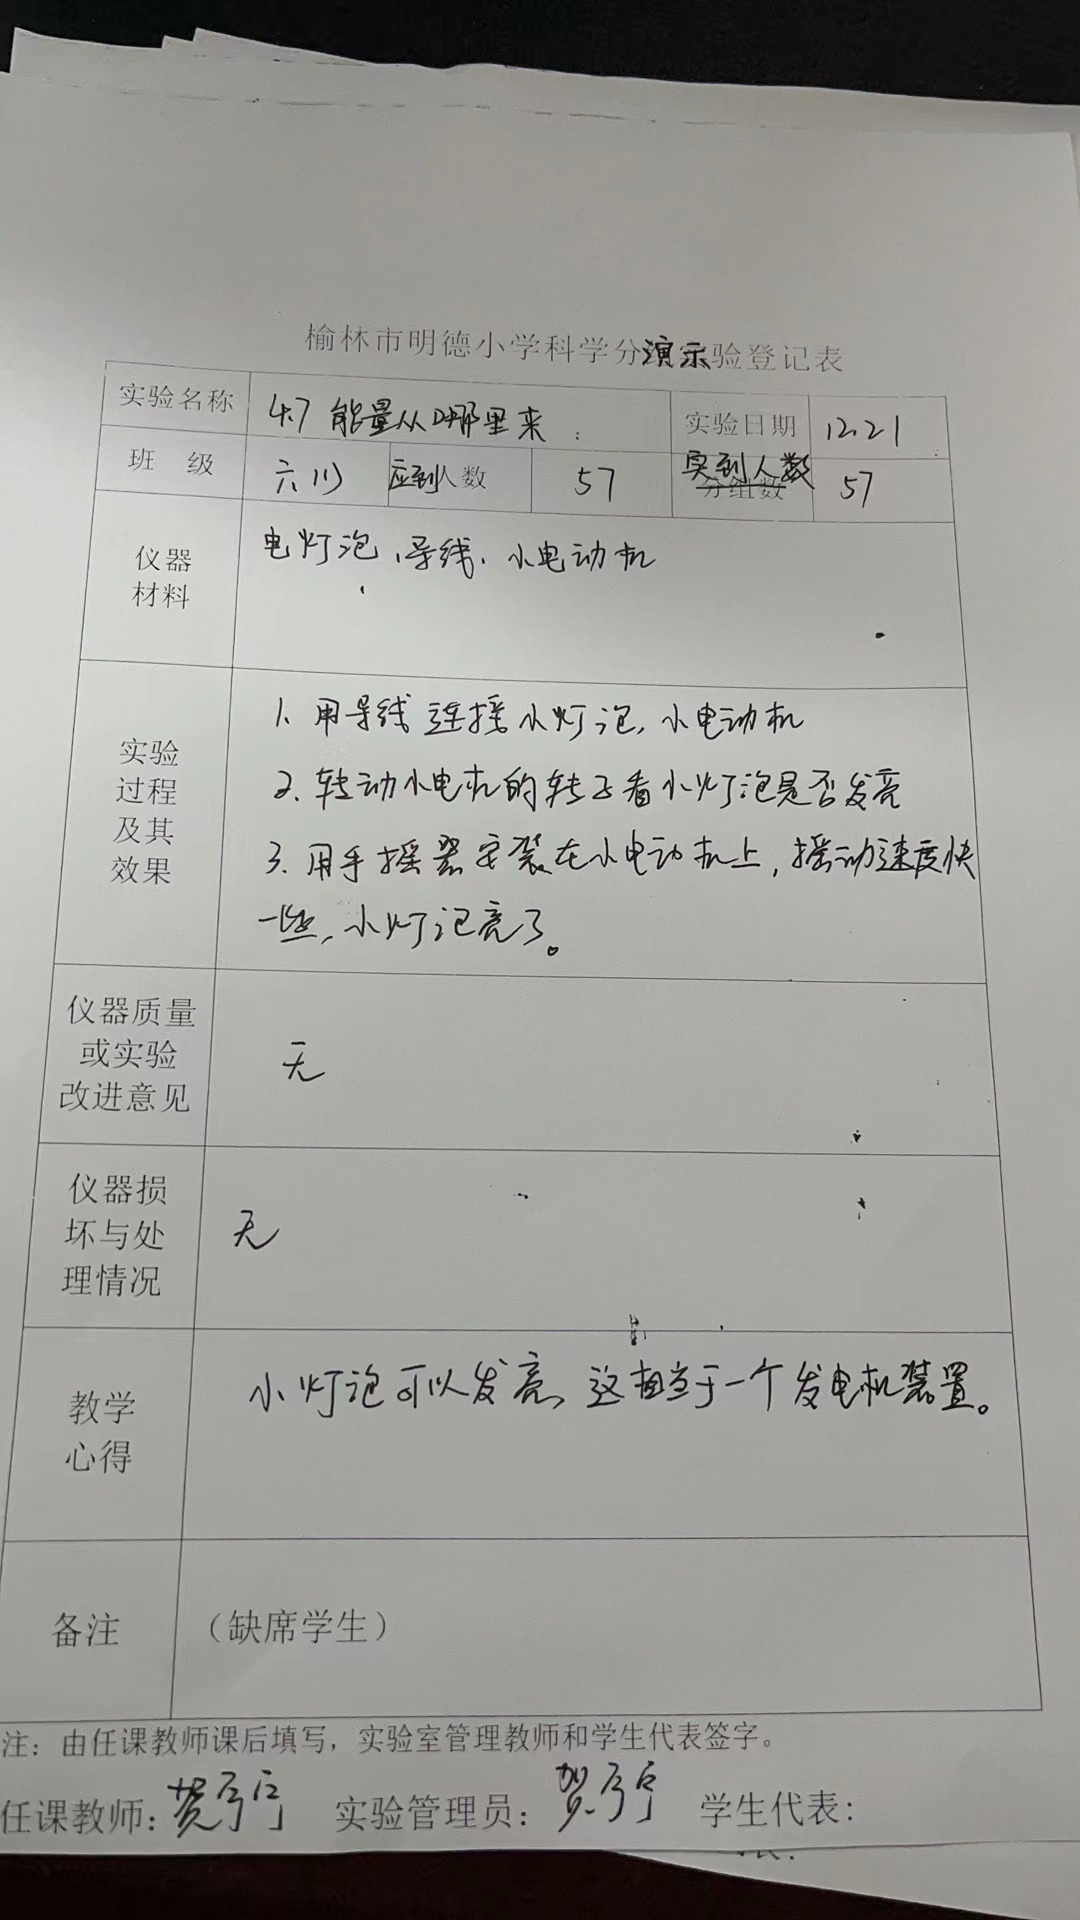 榆林市明德小学科学分演示验登记表
实验名称 4.7 能量从哪里来 实验日期 12.21
实到人数
班 级 六(1) 应到人数 57 分组数 57
仪器
材料
电灯泡、导线、小电动机
实验
过程
及其
效果
1、用导线连接小灯泡,小电动机
2、转动小电机的转子看小灯泡是否发亮
3、用手摇器安装在小电动机上,摇动速度快
一些,小灯泡亮了。
仪器质量
或实验
改进意见
无
仪器损
坏与处
理情况
无
教学
心得
小灯泡可以发亮、这相当于一个发电机装置。
备注
(缺席学生)
注:由任课教师课后填写,实验室管理教师和学生代表签字。
任课教师: 实验管理员: 学生代表: